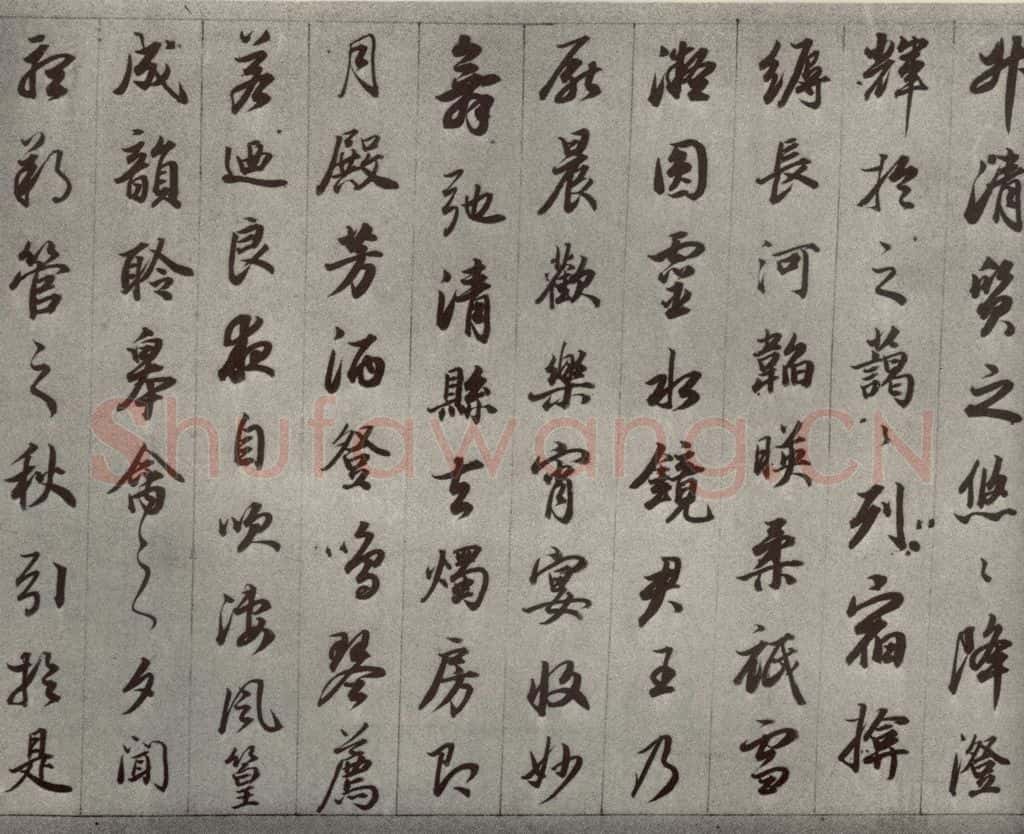 升清質之悠〻降澄
輝於之藹〻列宿揜
縟長河韜暎柔祇雪
凝圓靈水鏡君王乃
厭晨歡樂宵宴收妙
舞弛清縣去燭房即
月殿芳酒登鳴琴薦
若迺良夜自吹淒風篁
成韻聆皋禽之夕聞
聽朔管之秋引於是
Shufawang.CN